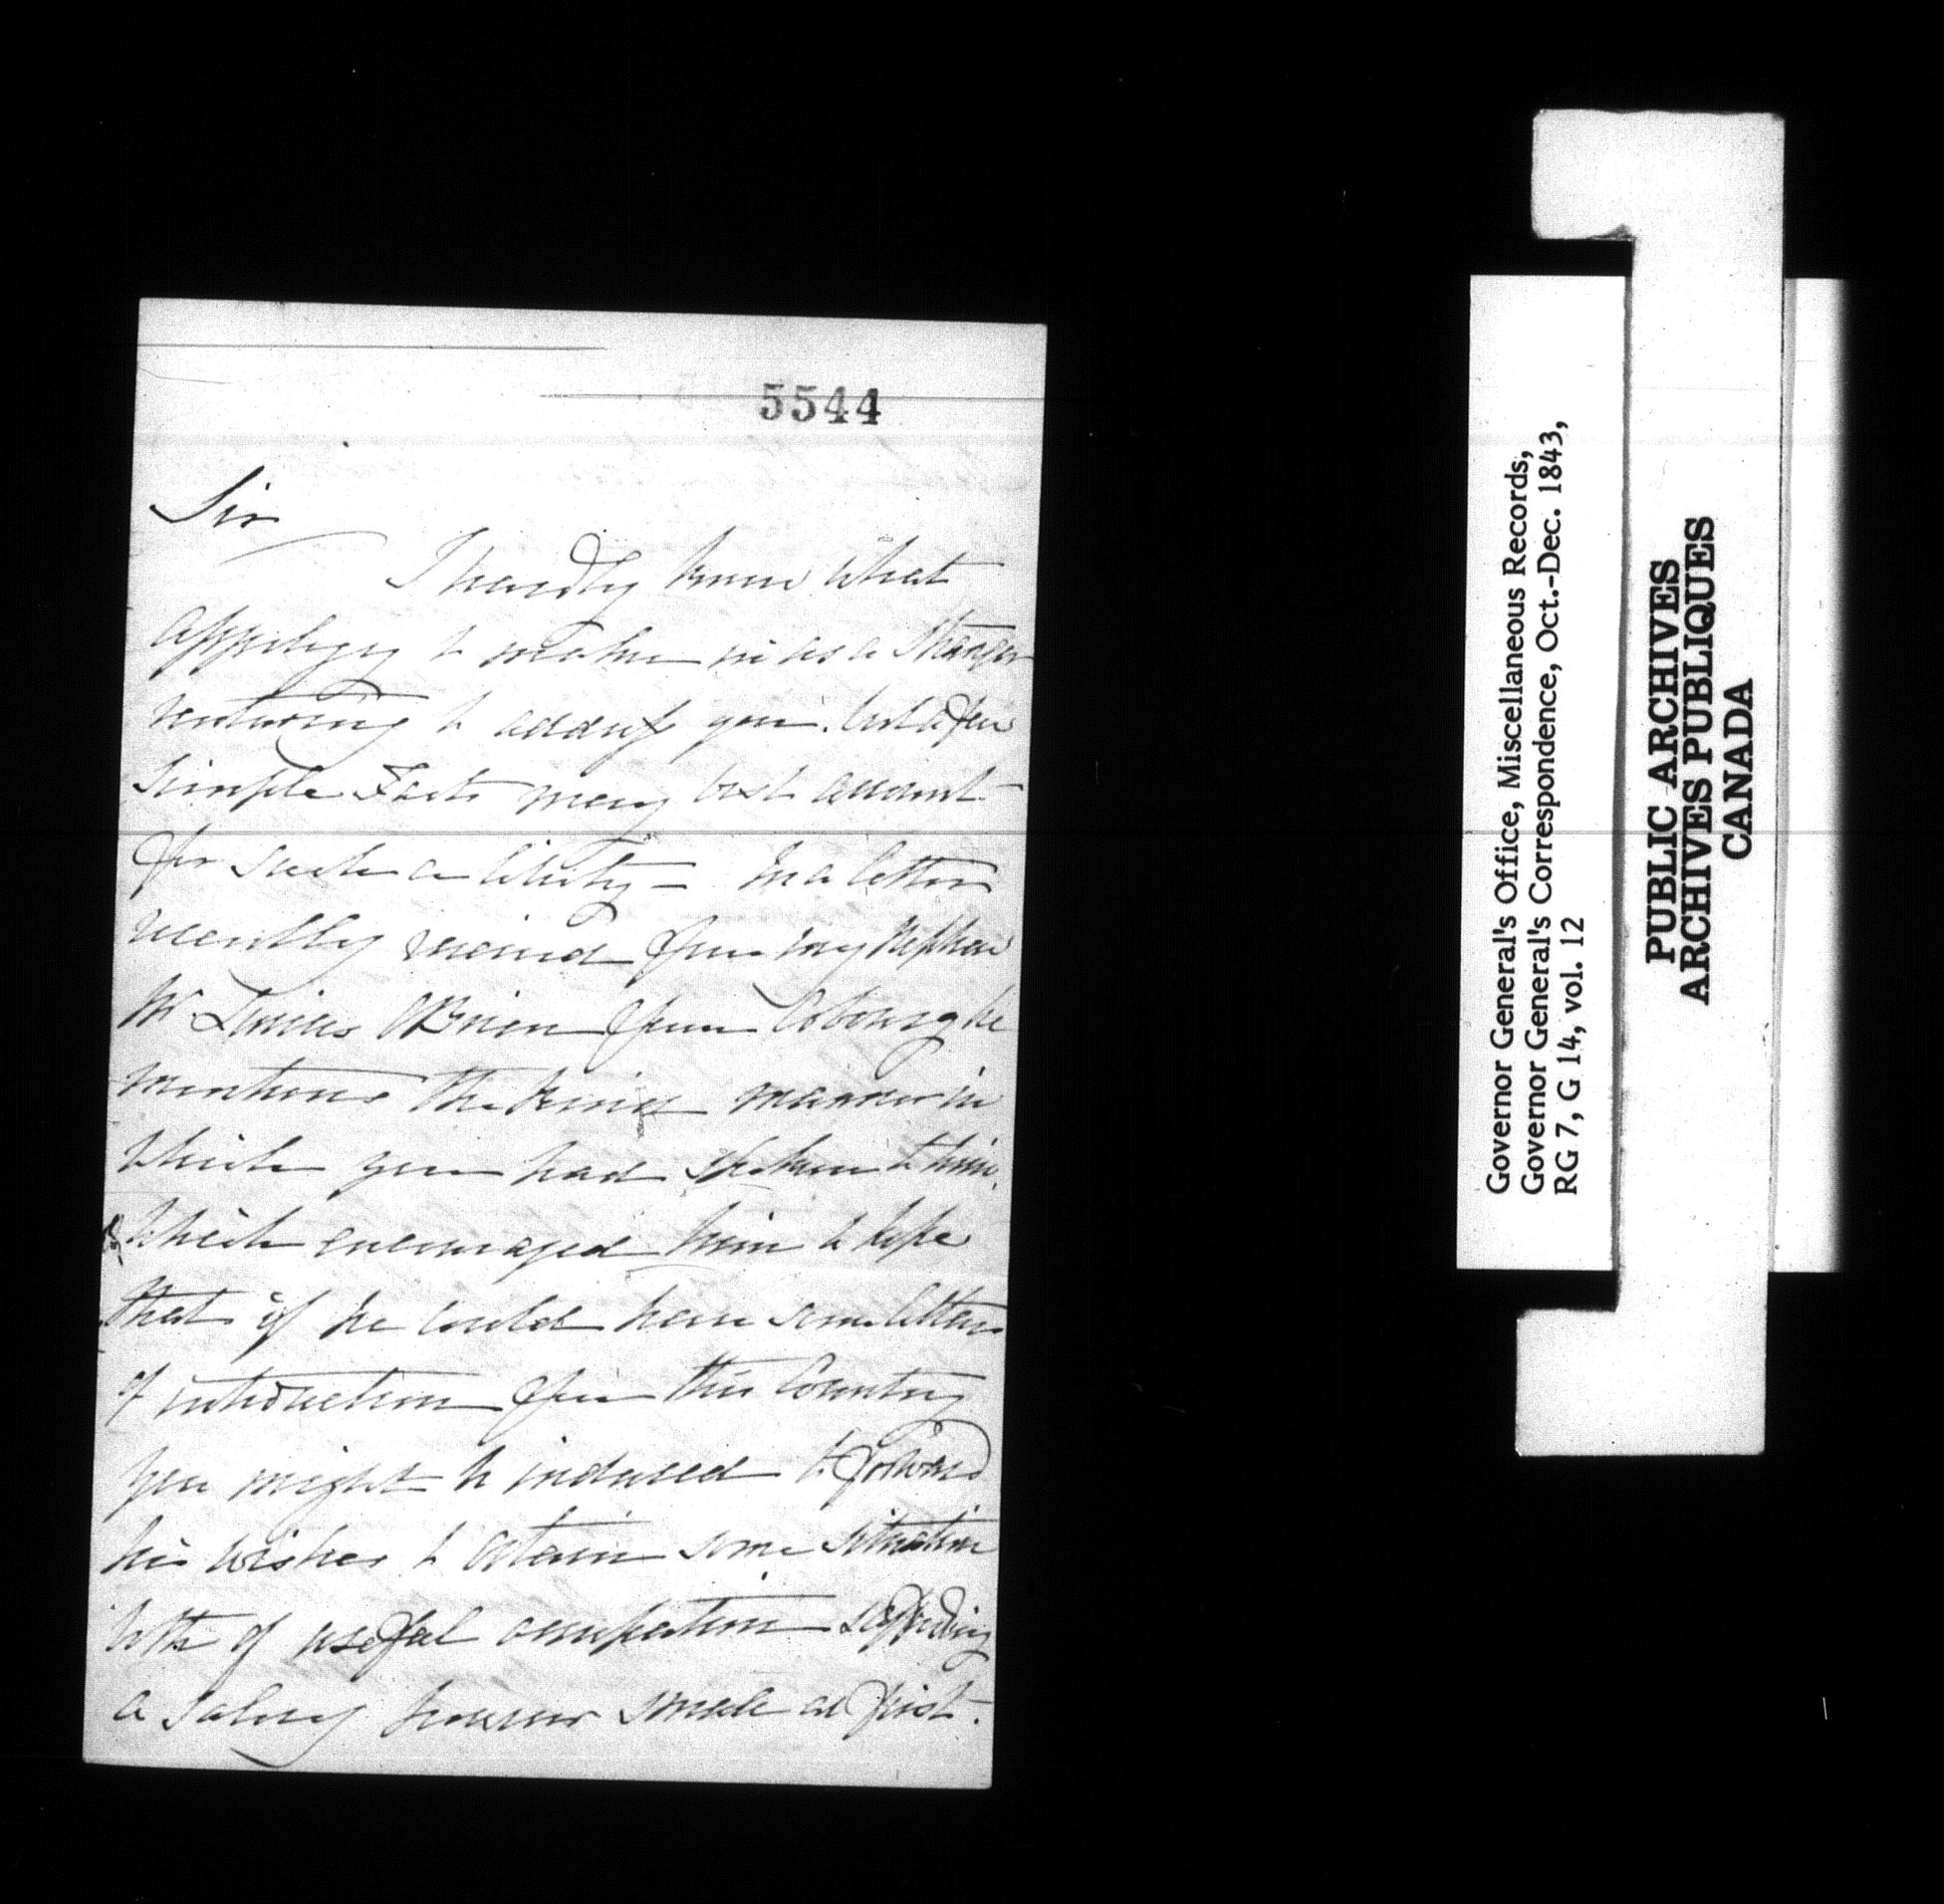 5544
Sir
I hardly know what
appology to make in as a Stranger
venturing to address you. but a few
simple Facts may best account
for such a liberty — In a letter
recently received from my Nephew
Mr Lucius OBrien from Cobourg he
mentions the kind manner in
which you had spoken to him,
which encouraged him to hope
that if he could have some letters
of introduction from this Country
you might be induced to forward
his wishes to obtain some situation
both of useful occupation & affording
a salary however small at first.
Governor General's Office, Miscellaneous Records,
Governor General's Correspondence, Oct.-Dec. 1843,
RG 7, G 14, vol. 12
PUBLIC ARCHIVES
ARCHIVES PUBLIQUES
CANADA